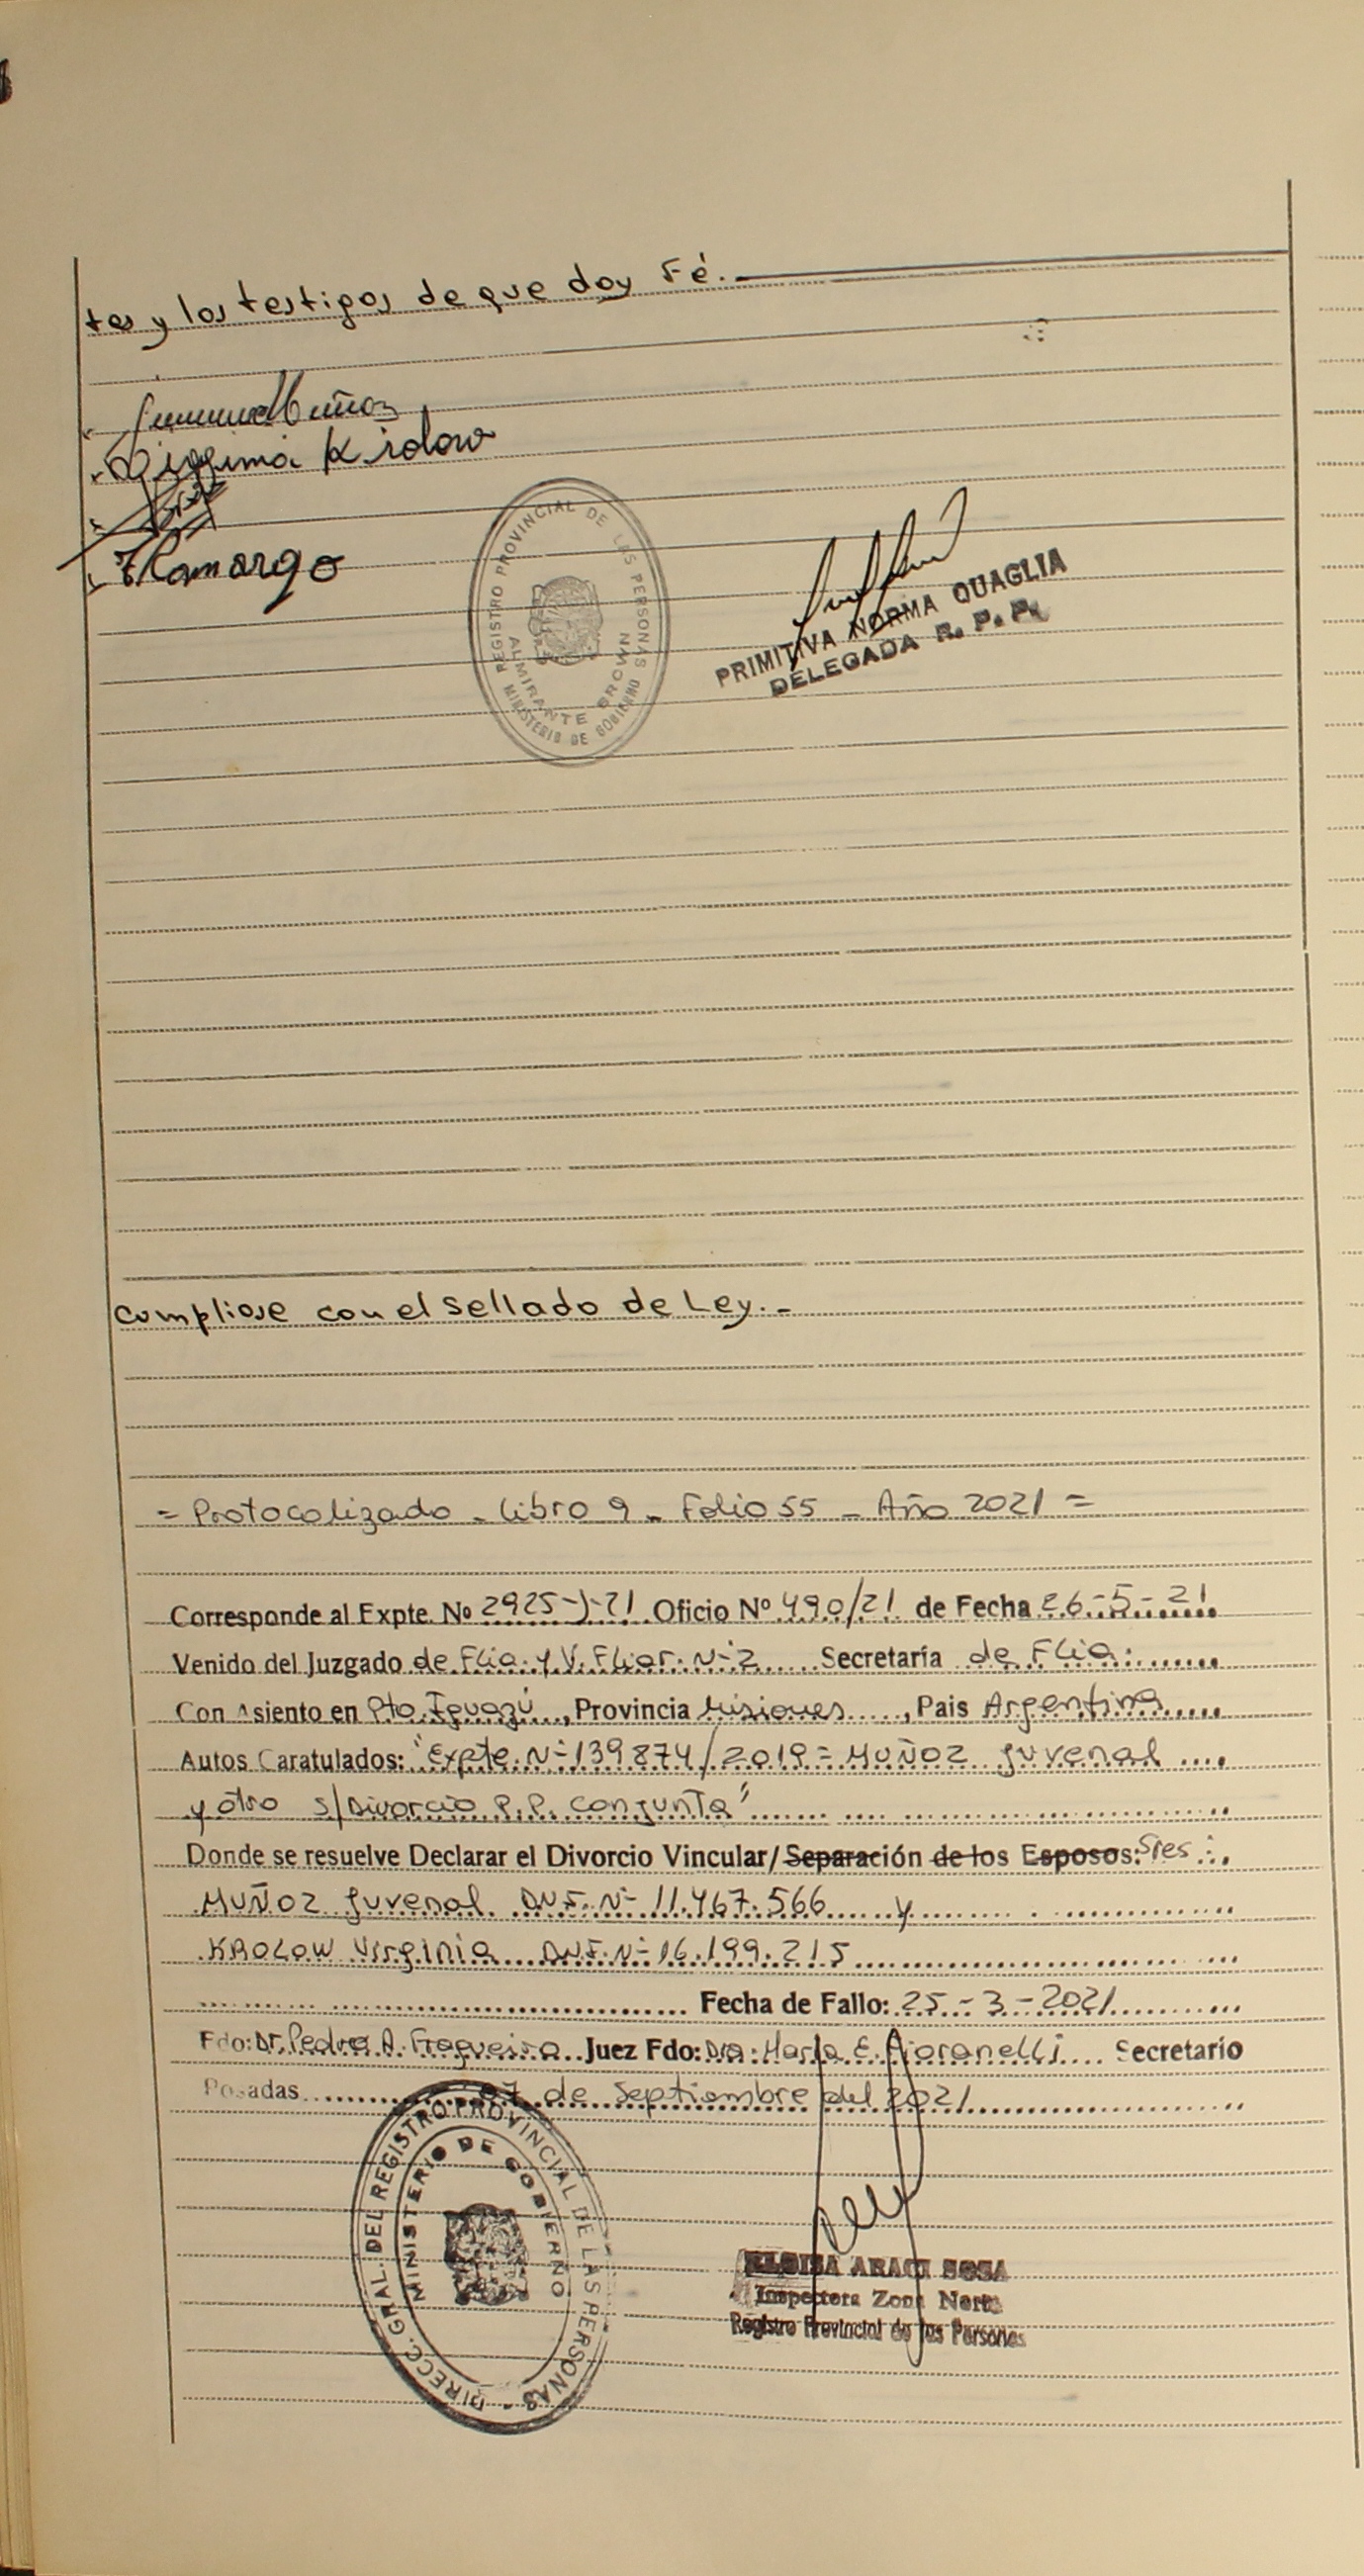 tes y los testigos de que doy Fé.
Juvenal Muñoz
Virginia Krolow
Camargo
REGISTRO PROVINCIAL DE LAS PERSONAS
MINISTERIO DE GOBIERNO
ALMIRANTE BROWN
PRIMITIVA NORMA QUAGLIA
DELEGADA R. P. P.
Cumpliose con el sellado de Ley. -
= Protocolizado - Libro 9 - Folio 55 - Año 2021 =
Corresponde al Expte. Nº 2925-J-21 Oficio Nº 490/21 de Fecha 26-5-21
Venido del Juzgado de Flia. y V. Fliar. Nº 2 Secretaría de Flia.
Con Asiento en Pto. Iguazú, Provincia Misiones, Pais Argentina
Autos Caratulados: "Expte. Nº 139874/2019 = MUÑOZ Juvenal
y otro s/Divorcio P.P. conjunta"
Donde se resuelve Declarar el Divorcio Vincular/Separación de los Esposos: Sres:
MUÑOZ Juvenal D.N.I. Nº 11.467.566 y
KROLOW Virginia D.N.I. Nº 16.199.215
Fecha de Fallo: 25-3-2021
Fdo: Dr. Pedro A. Fragueiro Juez Fdo: Dra. María E. Fioranelli Secretario
Posadas 07 de Septiembre del 2021
DIRECC. GRAL. DEL REGISTRO PROVINCIAL DE LAS PERSONAS
MINISTERIO DE GOBIERNO
ELOISA ARACI SOSA
Inspectora Zona Norte
Registro Provincial de las Personas